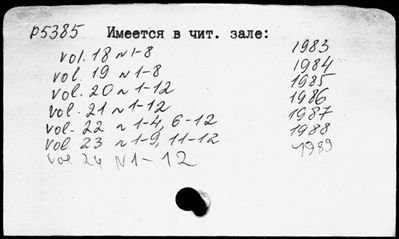 P5385 Имеется в чит. зале:
vol. 18 N 1-8 1983
vol. 19 N 1-8 1984
vol. 20 N 1-12 1985
vol. 21 N 1-12 1986
vol. 22 N 1-4, 6-12 1987
vol. 23 N 1-9, 11-12 1988
vol 24 N 1-12 1989